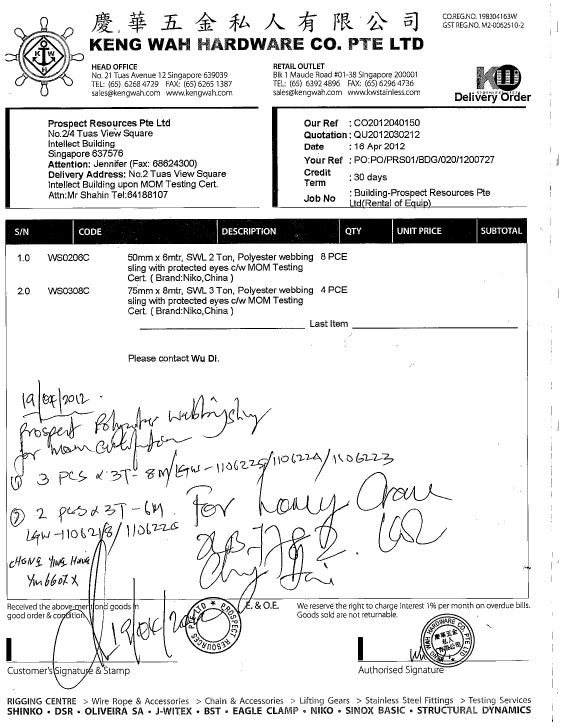 慶華五金私人有限公司
KENG WAH HARDWARE CO. PTE LTD
CO.REG.NO. 198304163W
GST REG.NO. M2-0062510-2
HEAD OFFICE
No. 21 Tuas Avenue 12 Singapore 639039
TEL: (65) 6268 4729 FAX: (65) 6265 1387
sales@kengwah.com www.kengwah.com
RETAIL OUTLET
Blk.1 Maude Road #01-38 Singapore 200001
TEL: (65) 6392 4896 FAX: (65) 6296 4736
sales@kengwah.com www.kwstainless.com
Delivery Order
Prospect Resources Pte Ltd
No.2/4 Tuas View Square
Intellect Building
Singapore 637576
Attention: Jennifer (Fax: 68624300)
Delivery Address: No.2 Tuas View Square
Intellect Building upon MOM Testing Cert.
Attn:Mr Shahin Tel:64188107
Our Ref : CO2012040150
Quotation : QU2012030212
Date : 16 Apr 2012
Your Ref : PO:PO/PRS01/BDG/020/1200727
Credit Term : 30 days
Job No : Building-Prospect Resources Pte
Ltd(Rental of Equip)
S/N CODE DESCRIPTION QTY UNIT PRICE SUBTOTAL
1.0 WS0206C 50mm x 6mtr, SWL 2 Ton, Polyester webbing 8 PCE
sling with protected eyes c/w MOM Testing
Cert. ( Brand:Niko,China )
2.0 WS0308C 75mm x 8mtr, SWL 3 Ton, Polyester webbing 4 PCE
sling with protected eyes c/w MOM Testing
Cert. ( Brand:Niko,China )
Last Item
Please contact Wu Di.
19/04/2012
Prospect Polyester webbing sling
for mom
① 3 PCS x 3T - 8M/LGW-1106225/1106224/1106223
② 2 PCS x 3T - 6M
LGW-1106218/1106226
For Crane
CHONG Ying Hong
YM6607X
Received the above mentiond goods in
good order & condition
E. & O.E.
We reserve the right to charge interest 1% per month on overdue bills.
Goods sold are not returnable.
19/04/2012
PROSPECT RESOURCES PTE LTD
KENG WAH HARDWARE CO. PTE LTD
慶華五金
私人
有限公司
Customer's Signature & Stamp
Authorised Signature
RIGGING CENTRE > Wire Rope & Accessories > Chain & Accessories > Lifting Gears > Stainless Steel Fittings > Testing Services
SHINKO • DSR • OLIVEIRA SA • J-WITEX • BST • EAGLE CLAMP • NIKO • SINOX BASIC • STRUCTURAL DYNAMICS